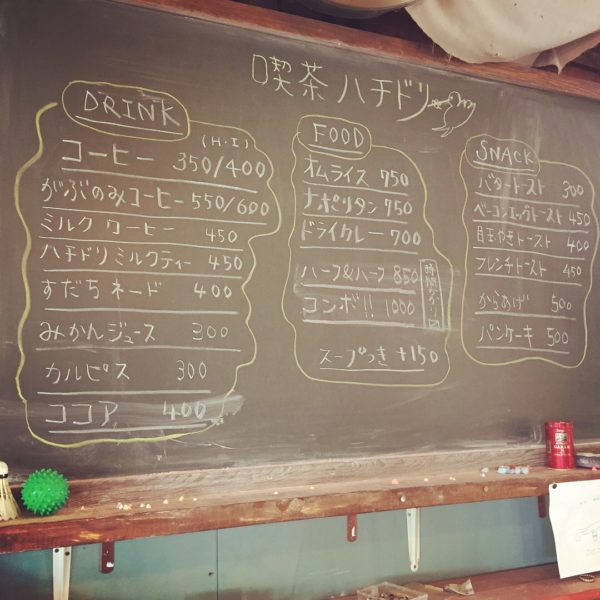 喫茶ハチドリ
DRINK
(H・I)
コーヒー 350/400
がぶのみコーヒー 550/600
ミルクコーヒー 450
ハチドリミルクティー 450
すだちネード 400
みかんジュース 300
カルピス 300
ココア 400
FOOD
オムライス 750
ナポリタン 750
ドライカレー 700
ハーフ&ハーフ 850
コンボ!! 1000
スープつき +150
SNACK
バタートースト 300
ベーコンエッグトースト 450
目玉やきトースト 400
フレンチトースト 450
からあげ 500
パンケーキ 500